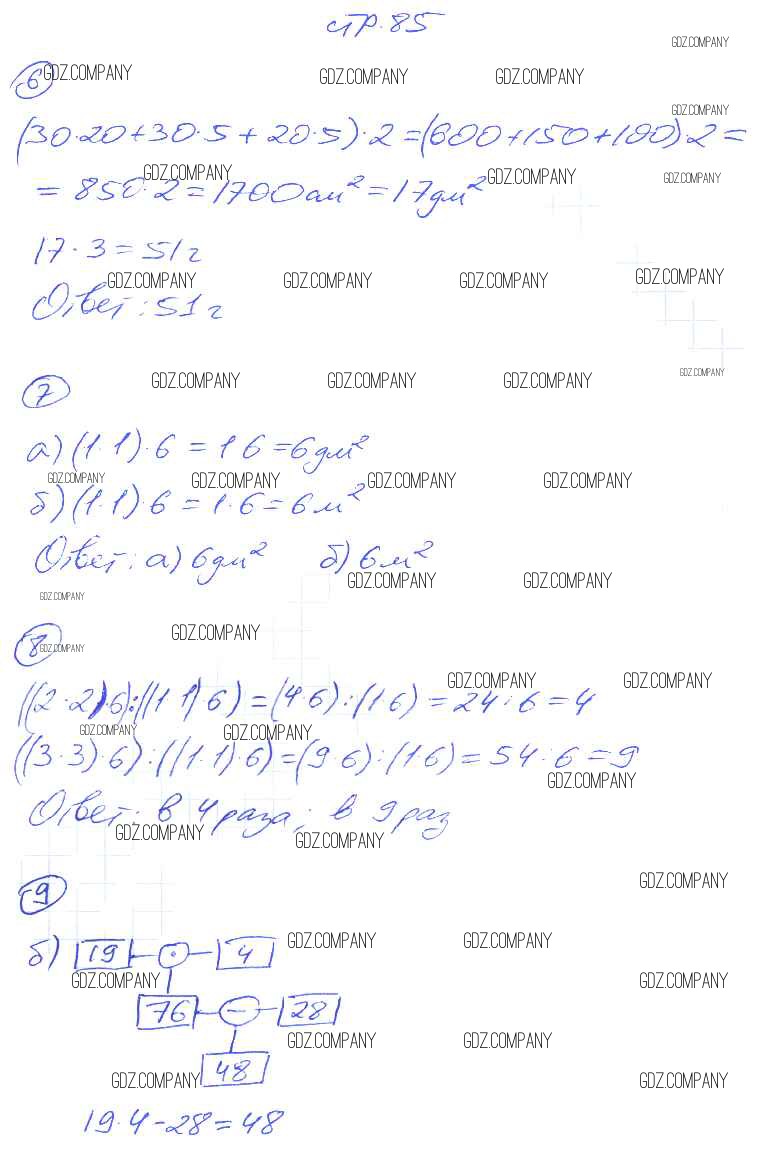 стр. 85
GDZ.COMPANY
6 GDZ.COMPANY GDZ.COMPANY GDZ.COMPANY
GDZ.COMPANY
(30·20+30·5+20·5)·2=(600+150+100)·2=
GDZ.COMPANY GDZ.COMPANY GDZ.COMPANY
=850·2=1700см²=17дм²
17·3=51г
GDZ.COMPANY GDZ.COMPANY GDZ.COMPANY GDZ.COMPANY
Ответ: 51г
GDZ.COMPANY GDZ.COMPANY GDZ.COMPANY GDZ.COMPANY
7
а) (1·1)·6=1·6=6дм²
GDZ.COMPANY GDZ.COMPANY GDZ.COMPANY GDZ.COMPANY
б) (1·1)·6=1·6=6м²
Ответ: а) 6дм² б) 6м²
GDZ.COMPANY GDZ.COMPANY
GDZ.COMPANY
GDZ.COMPANY
8 GDZ.COMPANY
GDZ.COMPANY GDZ.COMPANY
((2·2)·6):((1·1)·6)=(4·6):(1·6)=24:6=4
GDZ.COMPANY GDZ.COMPANY
((3·3)·6):((1·1)·6)=(9·6):(1·6)=54:6=9
GDZ.COMPANY
Ответ: в 4 раза; в 9 раз
GDZ.COMPANY GDZ.COMPANY
GDZ.COMPANY
9
GDZ.COMPANY GDZ.COMPANY
б) 19 · 4
GDZ.COMPANY GDZ.COMPANY
76 − 28
GDZ.COMPANY GDZ.COMPANY
48
GDZ.COMPANY GDZ.COMPANY
19·4−28=48